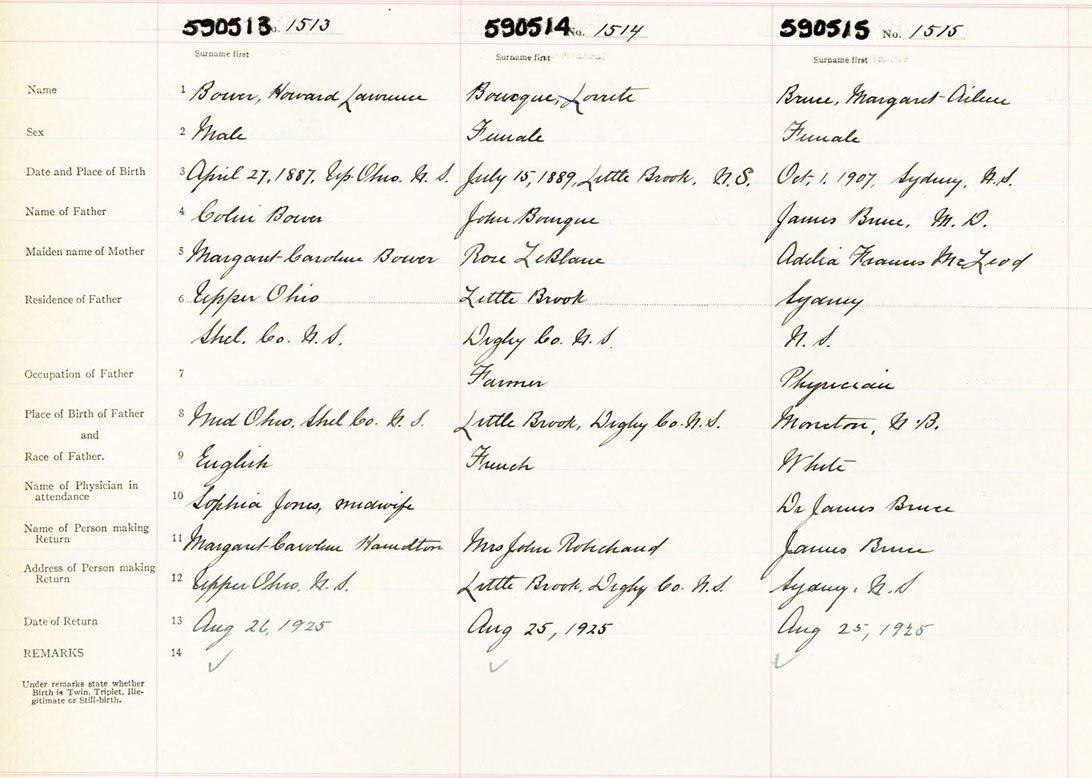 590513 No. 1513 590514 No. 1514 590515 No. 1515
Surname first Surname first Surname first
Name 1 Bower, Howard Lawrence Bourque, Lorette Bruce, Margaret Aileen
Sex 2 Male Female Female
Date and Place of Birth 3 April 27, 1887, Up. Ohio. N. S. July 15, 1889, Little Brook, N.S. Oct. 1. 1907, Sydney, N.S.
Name of Father 4 Colin Bower John Bourque James Bruce, M. D.
Maiden name of Mother 5 Margaret Caroline Bower Rose LeBlanc Adelia Frances McLeod
Residence of Father 6 Upper Ohio Little Brook Sydney
Shel. Co. N. S. Digby Co. N. S. N. S.
Occupation of Father 7 Farmer Physician
Place of Birth of Father 8 Mid Ohio, Shel Co. N. S. Little Brook, Digby Co. N.S. Moncton, N.B.
and
Race of Father. 9 English French White
Name of Physician in
attendance 10 Sophia Jones, midwife Dr James Bruce
Name of Person making
Return 11 Margaret Caroline Hamilton Mrs John Robichaud James Bruce
Address of Person making
Return 12 Upper Ohio, N. S. Little Brook, Digby Co. N.S. Sydney, N.S
Date of Return 13 Aug 26, 1925 Aug 25, 1925 Aug 25, 1925
REMARKS 14
Under remarks state whether
Birth is Twin, Triplet, Ille-
gitimate or Still-birth.